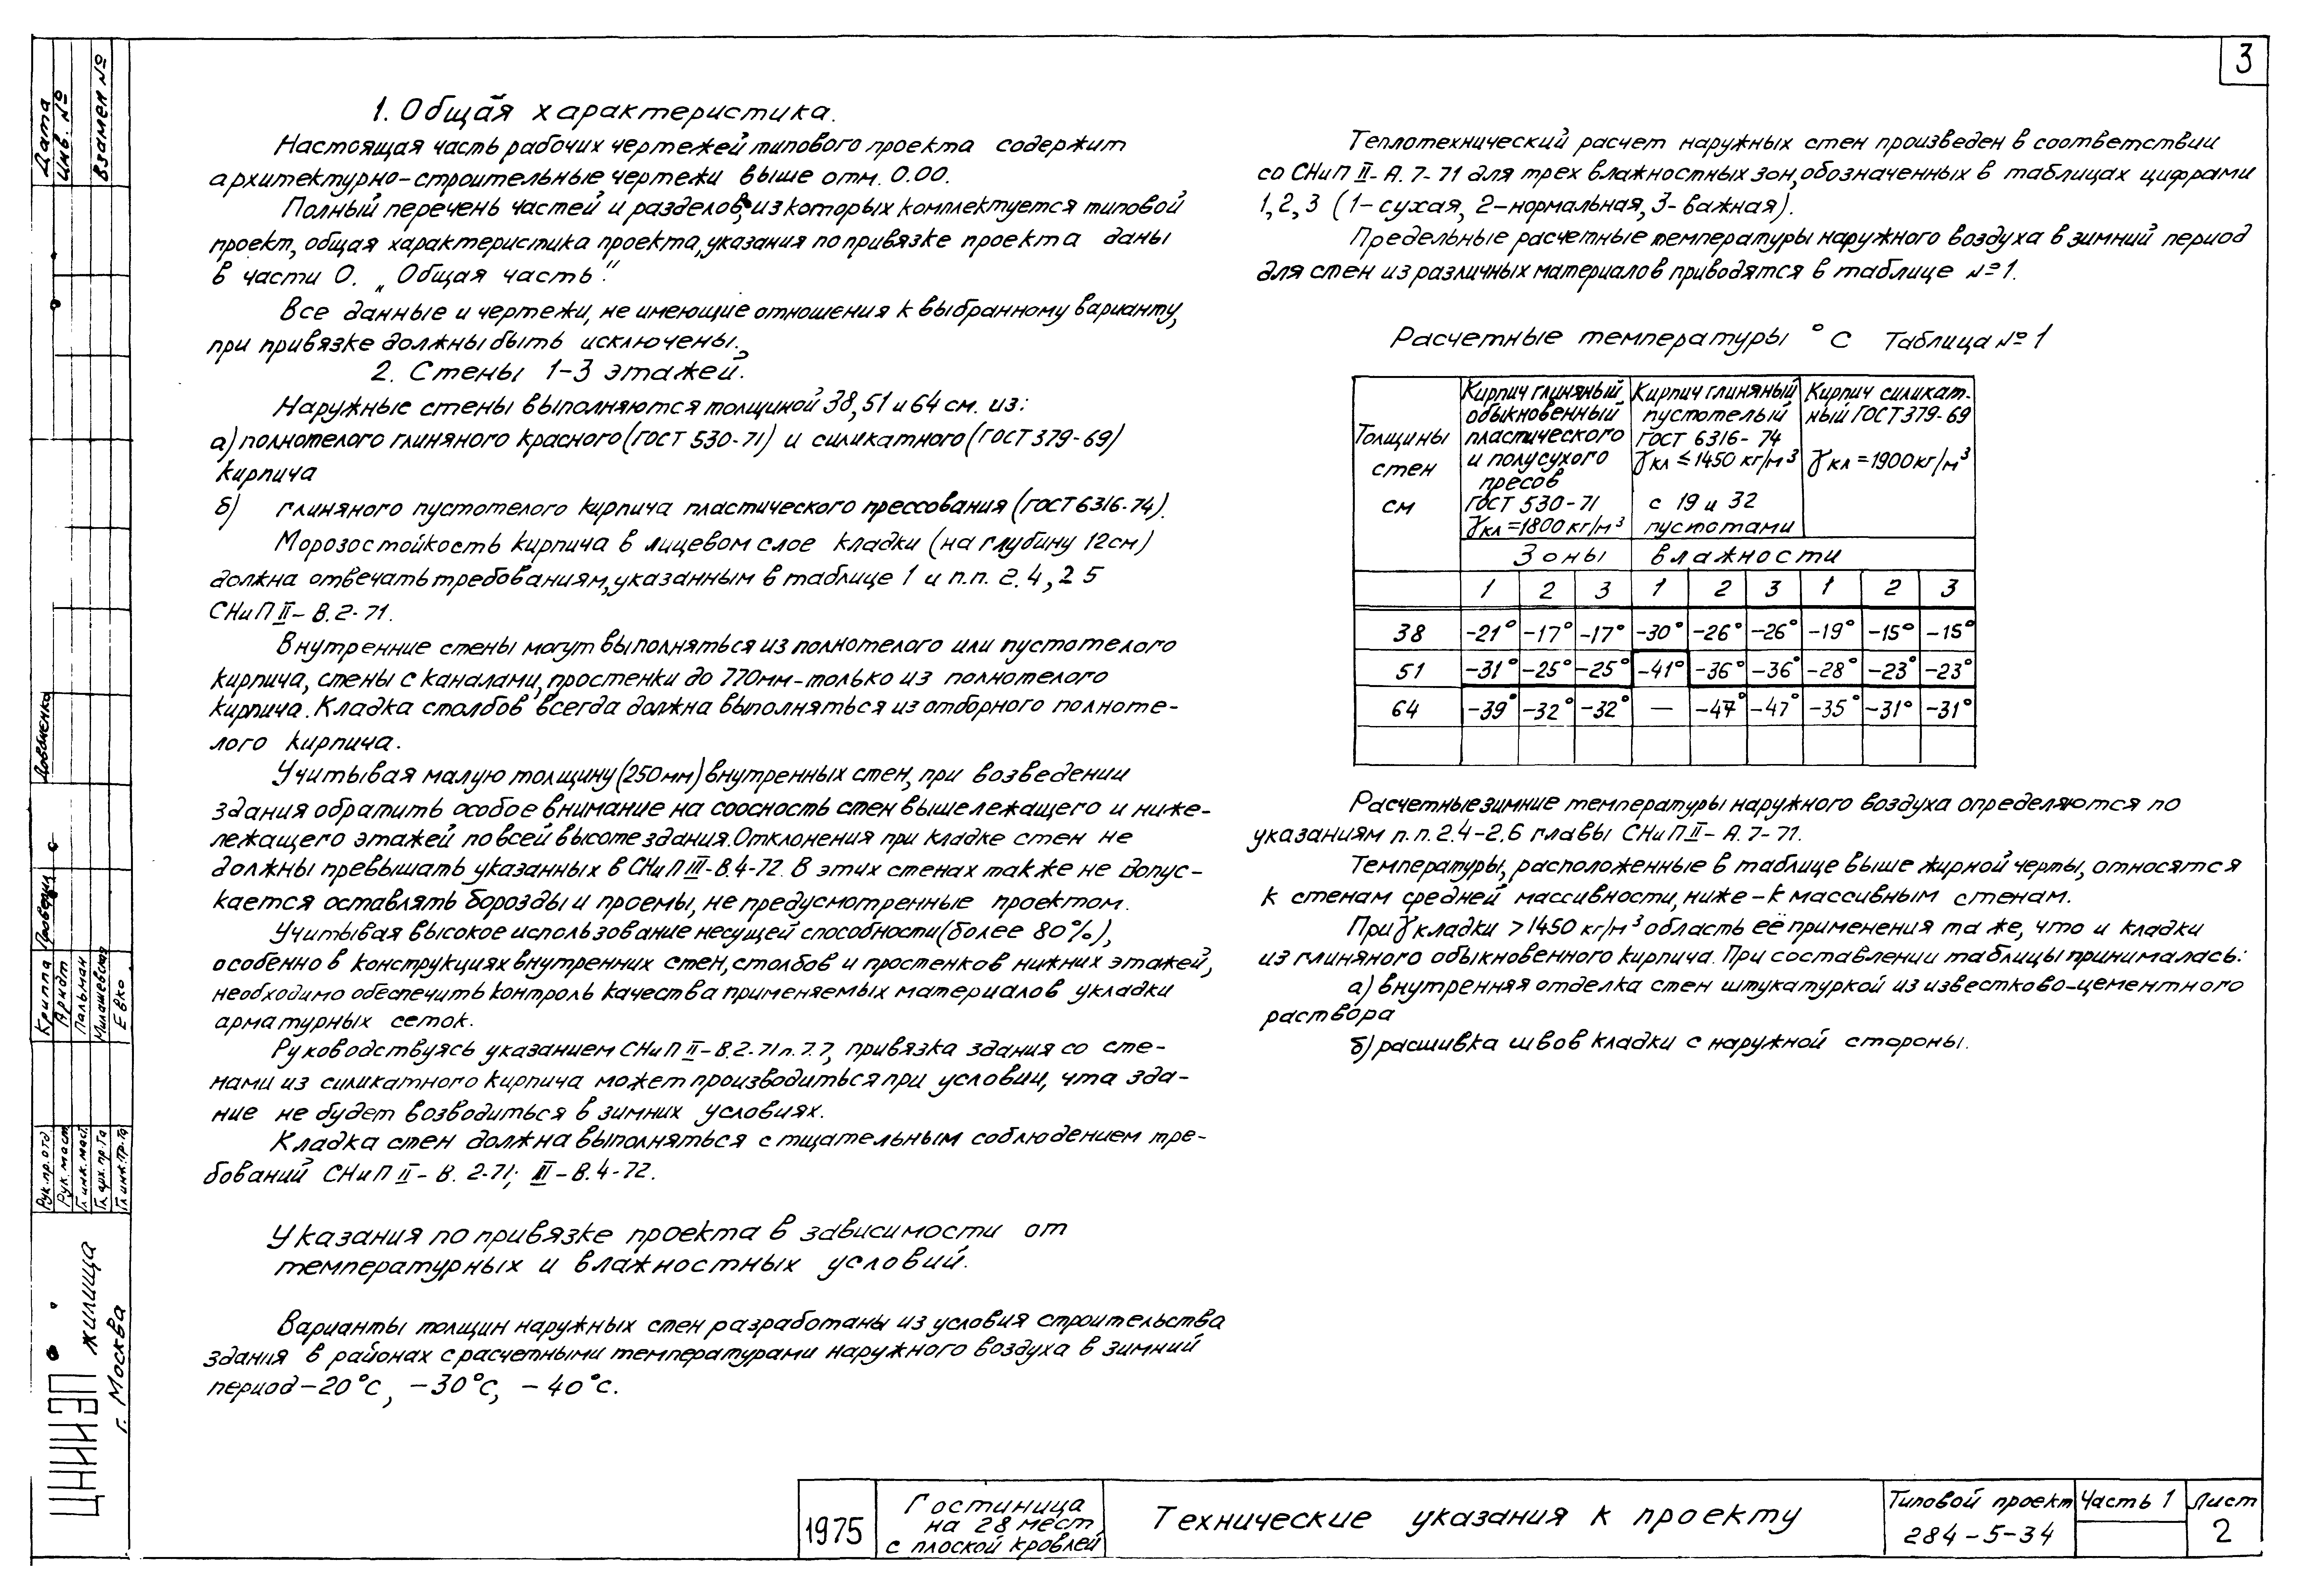 3
1. Общая характеристика.
Настоящая часть рабочих чертежей типового проекта содержит
архитектурно-строительные чертежи выше отм. 0.00.
Полный перечень частей и разделов, из которых комплектуется типовой
проект, общая характеристика проекта, указания по привязке проекта даны
в части 0. „Общая часть".
Все данные и чертежи, не имеющие отношения к выбранному варианту,
при привязке должны быть исключены.
2. Стены 1-3 этажей.
Наружные стены выполняются толщиной 38, 51 и 64 см. из:
а) полнотелого глиняного красного (ГОСТ 530-71) и силикатного (ГОСТ 379-69)
кирпича
б) глиняного пустотелого кирпича пластического прессования (ГОСТ 6316-74).
Морозостойкость кирпича в лицевом слое кладки (на глубину 12см)
должна отвечать требованиям, указанным в таблице 1 и п.п. 2.4, 2 5
СНиП II-В.2-71.
Внутренние стены могут выполняться из полнотелого или пустотелого
кирпича, стены с каналами, простенки до 770мм-только из полнотелого
кирпича. Кладка столбов всегда должна выполняться из отборного полноте-
лого кирпича.
Учитывая малую толщину (250мм) внутренных стен, при возведении
здания обратить особое внимание на соосность стен вышележащего и ниже-
лежащего этажей по всей высоте здания. Отклонения при кладке стен не
должны превышать указанных в СНиП III-В.4-72. В этих стенах также не допус-
кается оставлять борозды и проемы, не предусмотренные проектом.
Учитывая высокое использование несущей способности (более 80%),
особенно в конструкциях внутренних стен, столбов и простенков нижних этажей,
необходимо обеспечить контроль качества применяемых материалов укладки
арматурных сеток.
Руководствуясь указанием СНиП II-В.2-71 п. 7.7, привязка здания со сте-
нами из силикатного кирпича может производиться при условии, что зда-
ние не будет возводиться в зимних условиях.
Кладка стен должна выполняться с тщательным соблюдением тре-
бований СНиП II-В. 2-71; III-В.4-72.
Указания по привязке проекта в зависимости от
температурных и влажностных условий.
Варианты толщин наружных стен разработаны из условия строительства
здания в районах с расчетными температурами наружного воздуха в зимний
период -20°С, -30°С, -40°С.
Теплотехнический расчет наружных стен произведен в соответствии
со СНиП II-А.7-71 для трех влажностных зон, обозначенных в таблицах цифрами
1, 2, 3 (1-сухая, 2-нормальная, 3-важная).
Предельные расчетные температуры наружного воздуха в зимний период
для стен из различных материалов приводятся в таблице №1.
Расчетные температуры °С Таблица №1
Толщины стен см
Кирпич глиняный обыкновенный пластического и полусухого пресов ГОСТ 530-71 γкл=1800кг/м³
Кирпич глиняный пустотелый ГОСТ 6316-74 γкл≤1450 кг/м³ с 19 и 32 пустотами
Кирпич силикат. ный ГОСТ 379-69 γкл=1900кг/м³
Зоны влажности
1 2 3 1 2 3 1 2 3
38 -21° -17° -17° -30° -26° -26° -19° -15° -15°
51 -31° -25° -25° -41° -36° -36° -28° -23° -23°
64 -39° -32° -32° — -47° -47° -35° -31° -31°
Расчетные зимние температуры наружного воздуха определяются по
указаниям п.п. 2.4-2.6 главы СНиП II-А.7-71.
Температуры, расположенные в таблице выше жирной черты, относятся
к стенам средней массивности, ниже-к массивным стенам.
При γ кладки >1450 кг/м³ область её применения та же, что и кладки
из глиняного обыкновенного кирпича. При составлении таблицы принималась:
а) внутренняя отделка стен штукатуркой из известково-цементного
раствора
б) расшивка швов кладки с наружной стороны.
1975
Гостиница
на 28 мест
с плоской кровлей
Технические указания к проекту
Типовой проект
284-5-34
Часть 1
Лист
2
Дата
Инв. №
Взамен №
Довбненко
Проверил
Криппа
Арндт
Пальман
Милашевская
Евко
Рук.пр.отд.
Рук. маст
Гл.инж.маст.
Гл. арх. пр-та
Гл.инж.пр-та
ЦНИИЭП
жилища
г. Москва